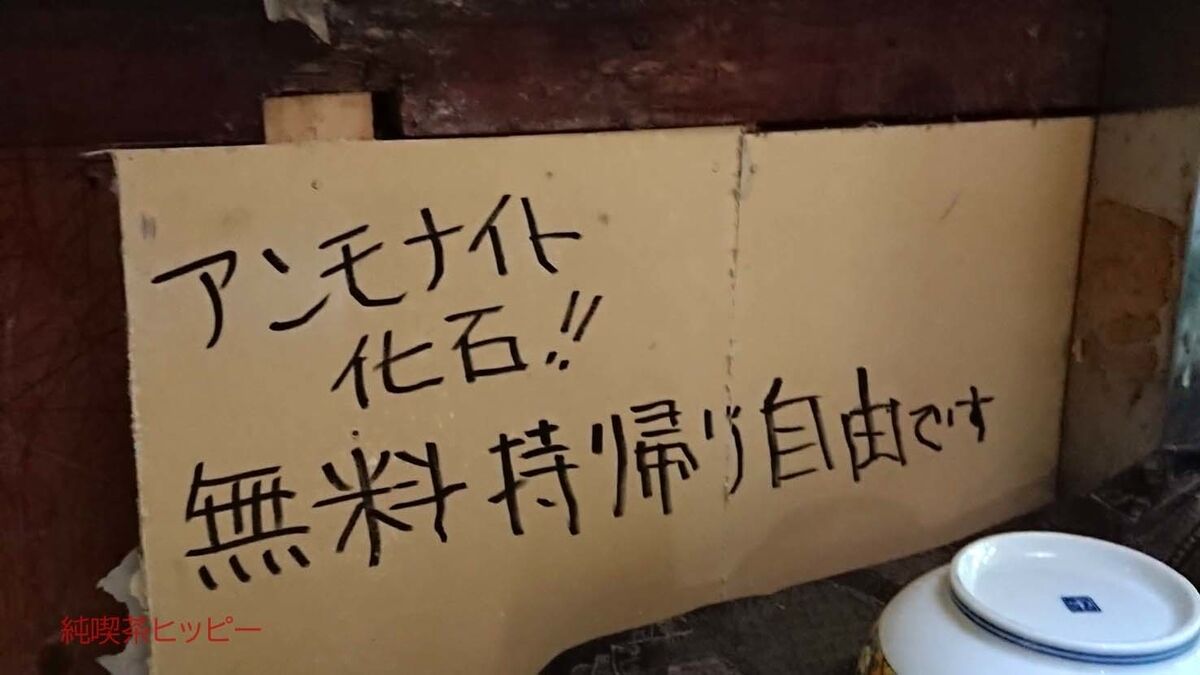 アンモナイト
化石!!
無料持帰り自由です
純喫茶ヒッピー